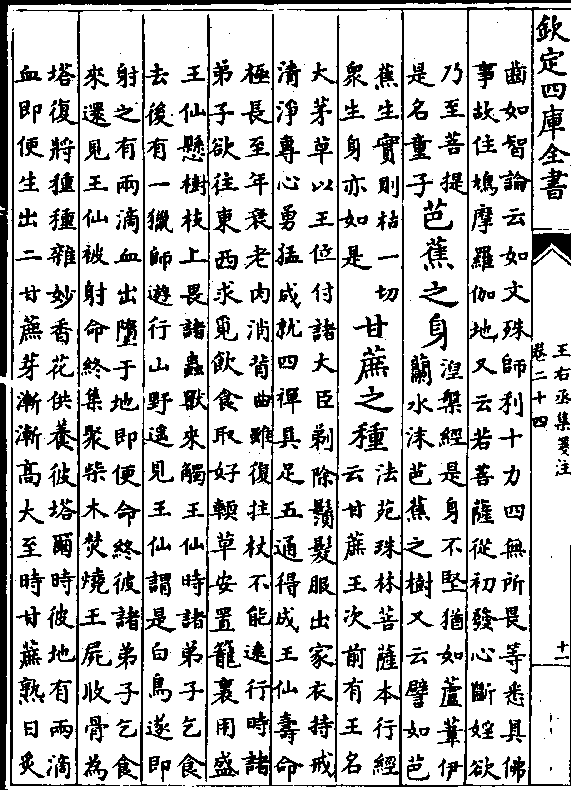 欽定四庫全書
王右丞集箋注
卷二十四
十一
齒如智論云如文殊師利十力四無所畏等悉具佛
事故住鳩摩羅伽地又云若菩薩從初發心斷婬欲
乃至菩提
是名童子
芭蕉之身
湼槃經是身不堅猶如蘆葦伊
蘭水沫芭蕉之樹又云譬如芭
蕉生實則枯一切
衆生身亦如是
甘蔗之種
法苑珠林菩薩本行經
云甘蔗王次前有王名
大茅草以王位付諸大臣剃除鬚髮服出家衣持戒
清淨專心勇猛成就四禪具足五通得成王仙壽命
極長至年衰老肉消背曲雖復拄杖不能逺行時諸
弟子欲往東西求覓飲食取好輭草安置籠裏用盛
王仙懸樹枝上畏諸蟲獸來觸王仙時諸弟子乞食
去後有一獵師遊行山野遥見王仙謂是白鳥遂即
射之有兩滴血出墮于地即便命終彼諸弟子乞食
來還見王仙被射命終集聚柴木焚燒王屍收骨為
塔復將種種雜妙香花供養彼塔爾時彼地有兩滴
血即便生出二甘蔗芽漸漸高大至時甘蔗熟日炙